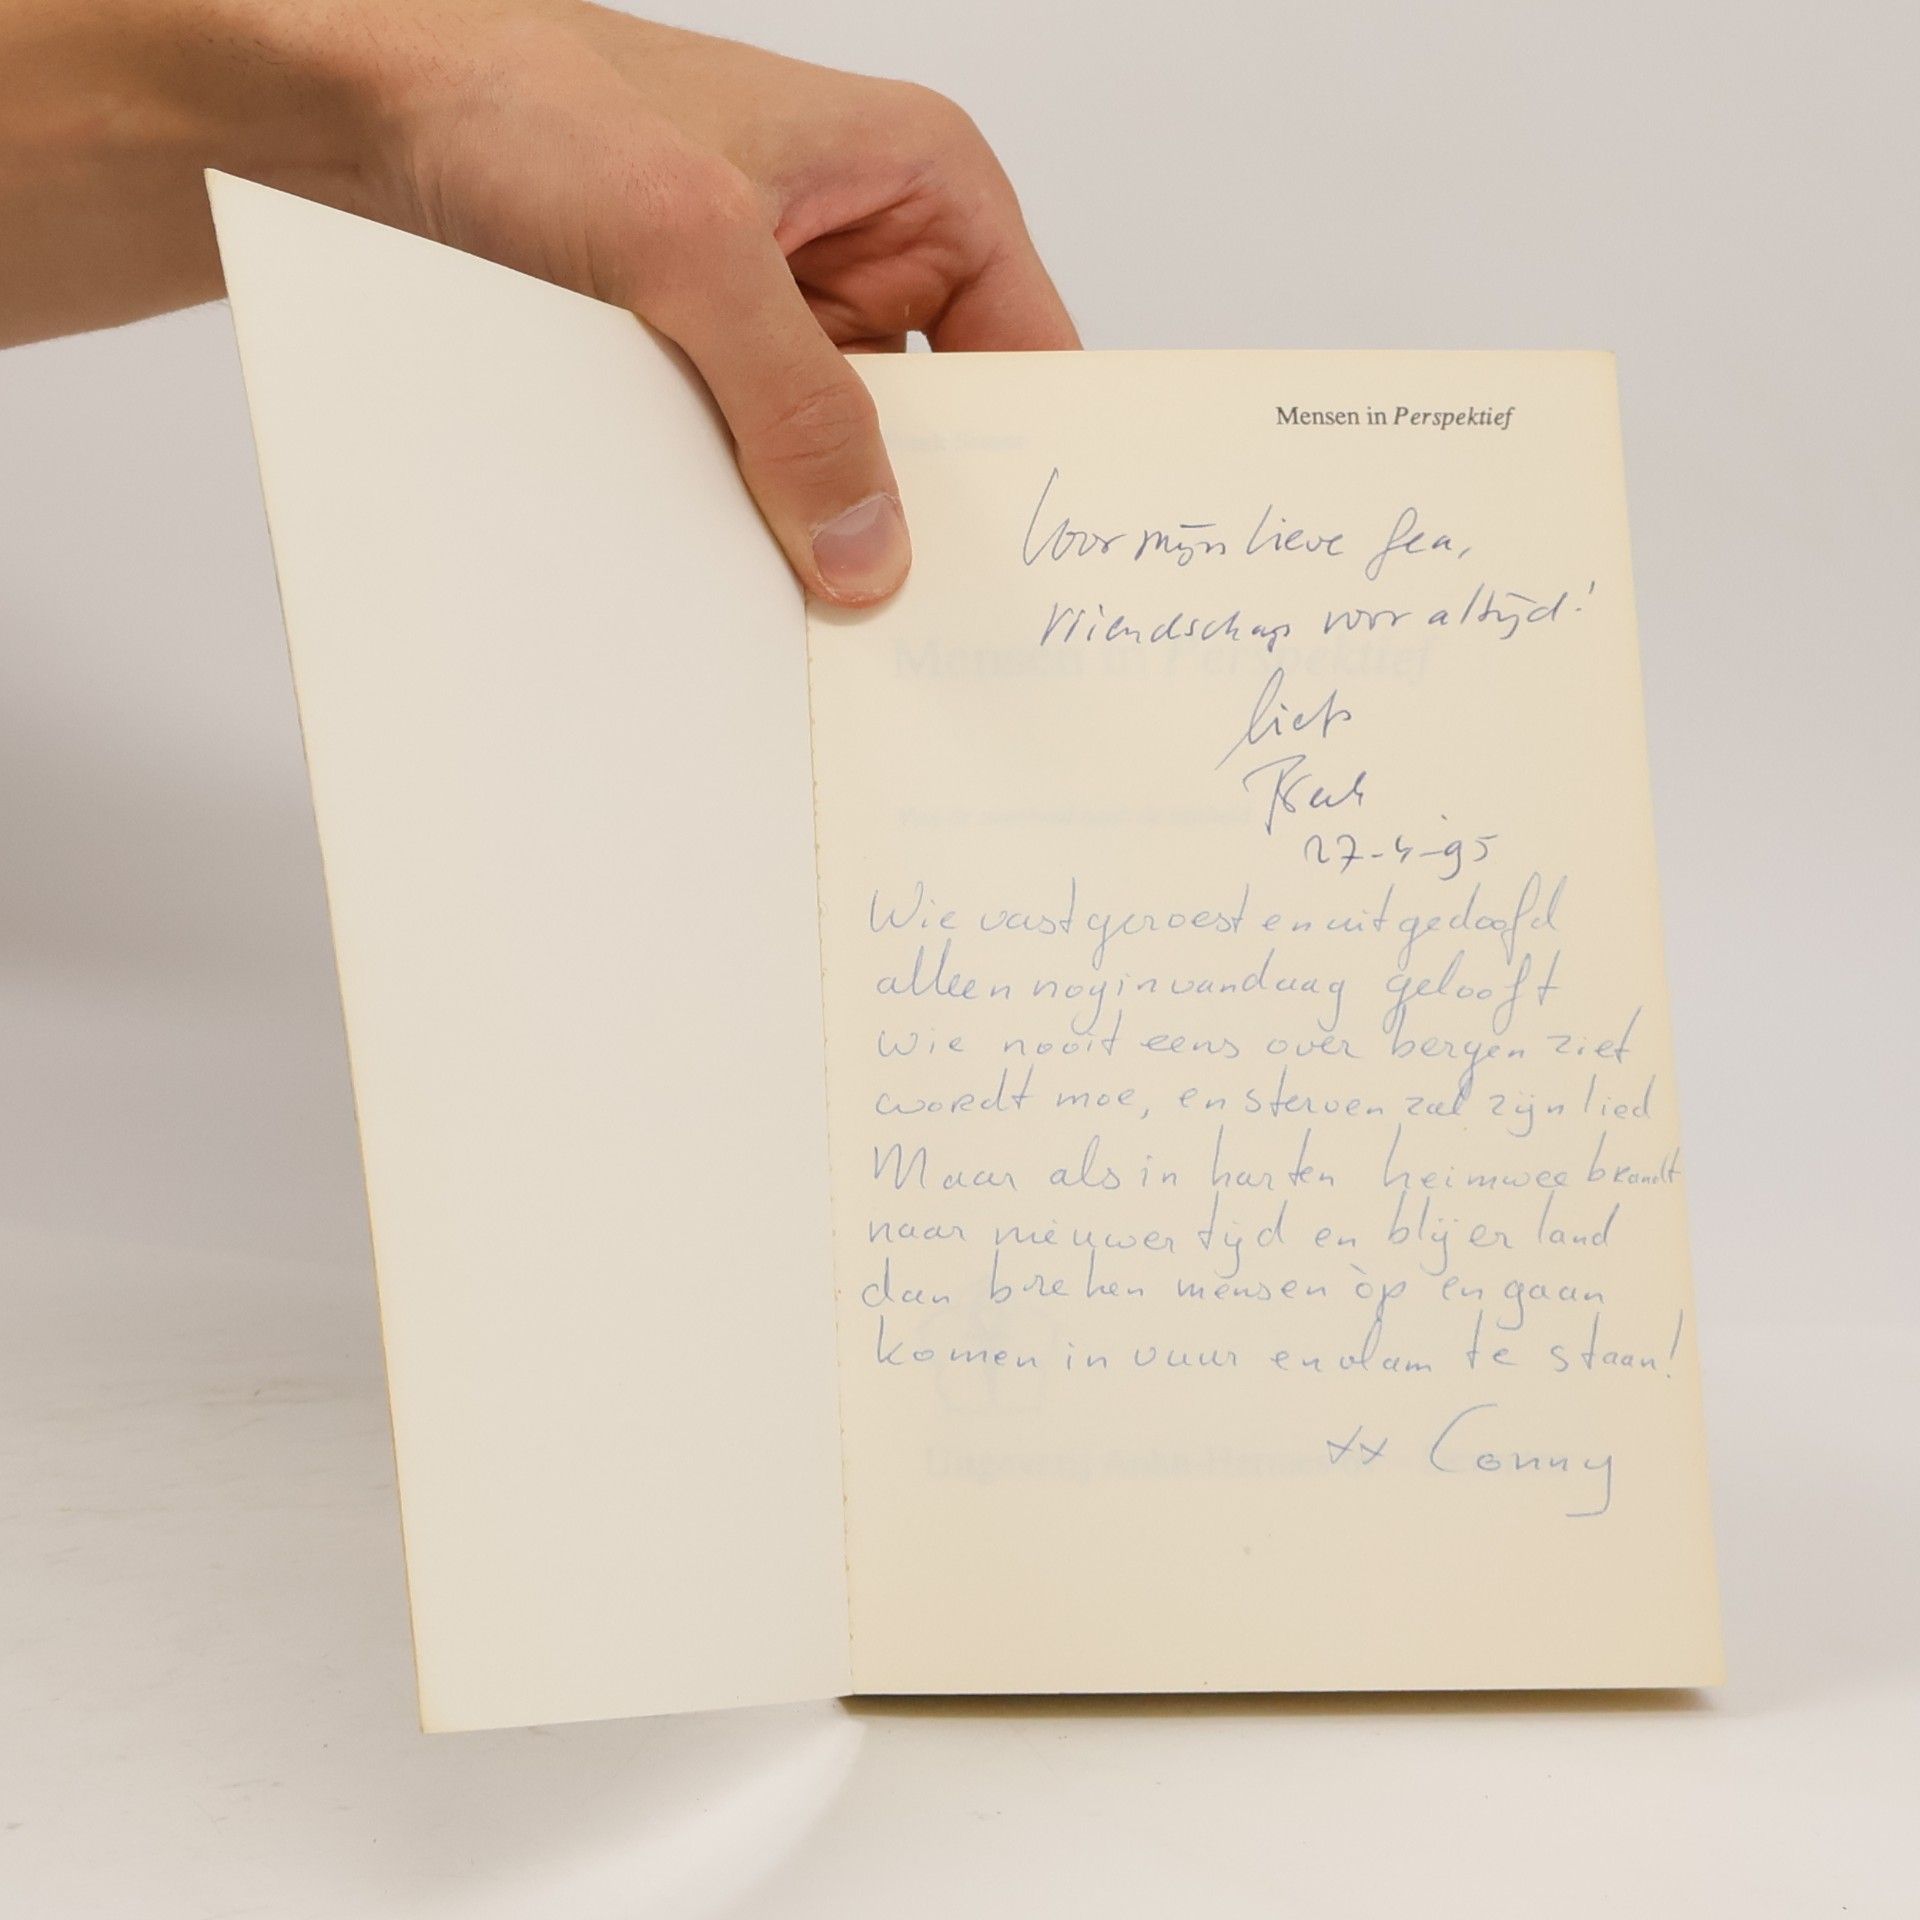 Mensen in Perspektief
Voor mijn lieve Gea,
vriendschap voor altijd!
liefs
27-4-95
Wie vastgeroest en uitgedoofd
alleen nog in vandaag gelooft
wie nooit eens over bergen ziet
wordt moe, en sterven zal zijn lied
Maar als in harten heimwee brandt
naar nieuwer tijd en blijer land
dan breken mensen òp en gaan
komen in vuur en vlam te staan!
xx Conny